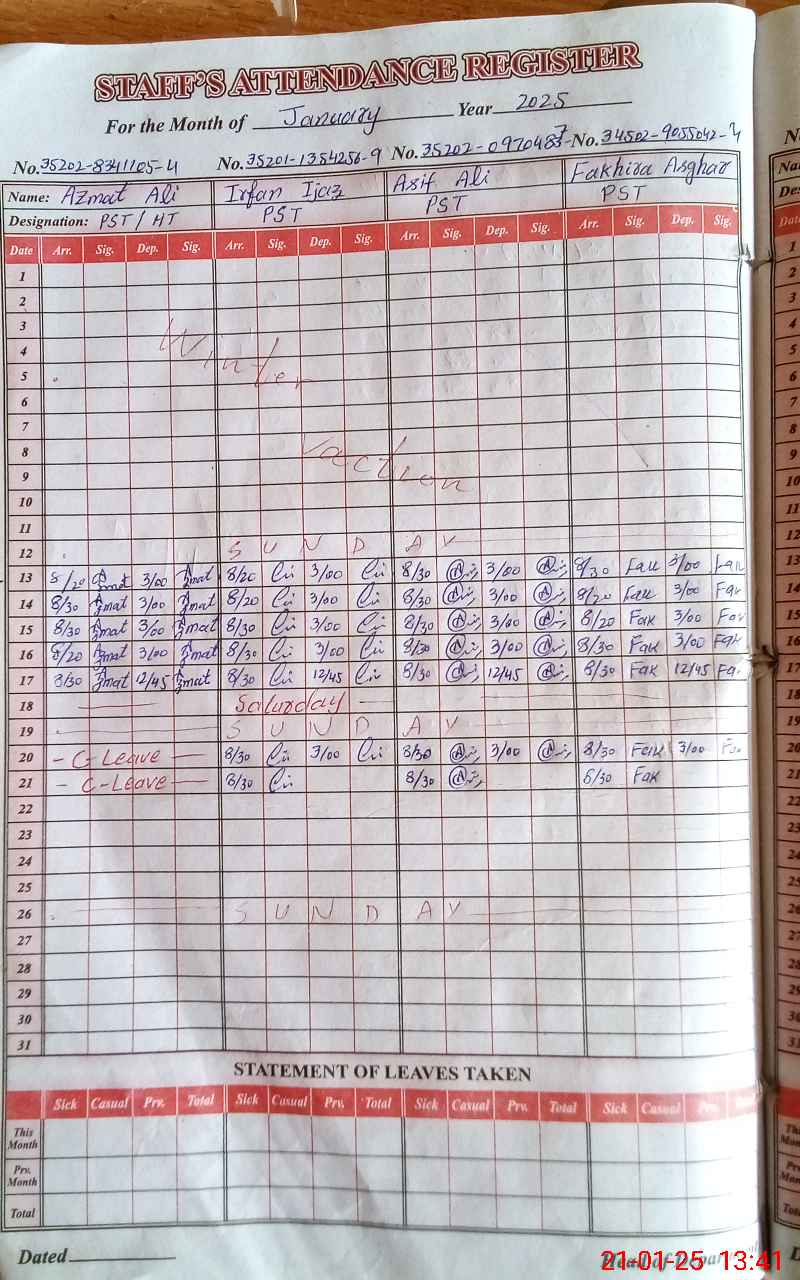 STAFF'S ATTENDANCE REGISTER
For the Month of January Year 2025
No. 35202-8341105-4 No. 35201-1354256-9 No. 35202-0970483-7 No. 34502-9055042-
Name: Azmat Ali Irfan Ijaz Asif Ali Fakhira Asghar
Designation: PST/HT PST PST PST
Date Arr. Sig. Dep. Sig. Arr. Sig. Dep. Sig. Arr. Sig. Dep. Sig. Arr. Sig. Dep. Sig.
1
2
3
4 Winter
5
6
7
8 Vaction
9
10
11
12 SUNDAY
13 8/20 Azmat 3/00 Azmat 8/20 3/00 8/30 3/00 8/30 Fak 3/00 Fak
14 8/30 Azmat 3/00 Azmat 8/20 3/00 8/30 3/00 8/20 Fak 3/00 Fak
15 8/30 Azmat 3/00 Azmat 8/30 3/00 8/30 3/00 8/20 Fak 3/00 Fak
16 8/20 Azmat 3/00 Azmat 8/30 3/00 8/30 3/00 8/30 Fak 3/00 Fak
17 8/30 Azmat 12/45 Azmat 8/30 12/45 8/30 12/45 8/30 Fak 12/45 Fak
18 Saturday
19 SUNDAY
20 - C-Leave - 8/30 3/00 8/30 3/00 8/30 Fak 3/00
21 - C-Leave - 8/30 8/30 8/30 Fak
22
23
24
25
26 SUNDAY
27
28
29
30
31
STATEMENT OF LEAVES TAKEN
Sick Casual Prv. Total Sick Casual Prv. Total Sick Casual Prv. Total Sick Casual Prv.
This Month
Prv. Month
Total
Dated
21-01-25 13:41